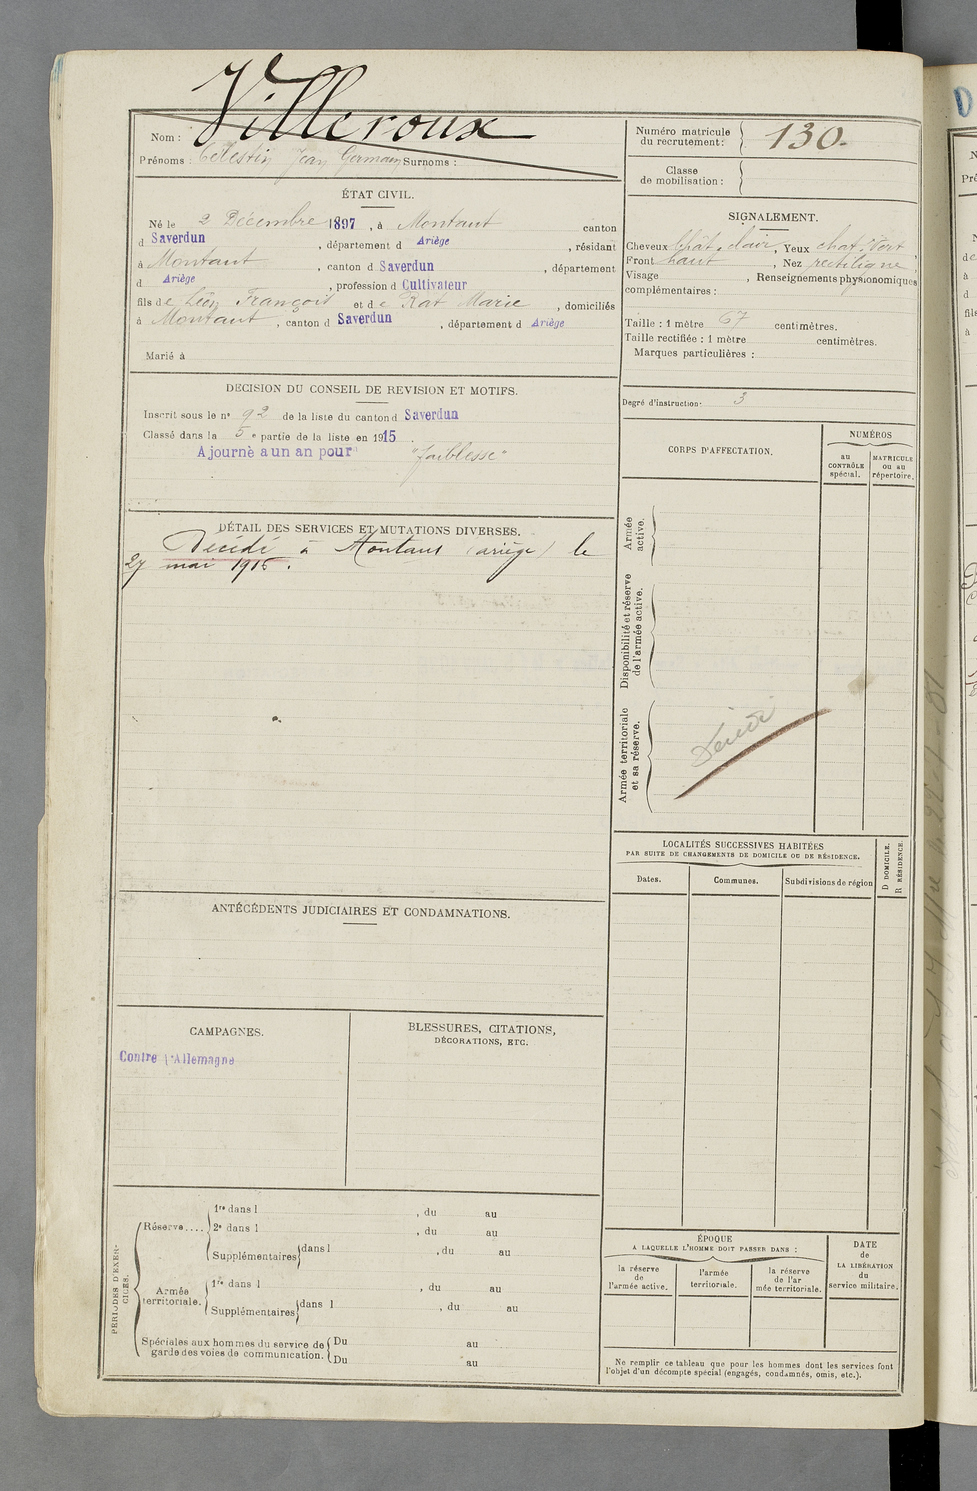 Villeroux
Nom :
Prénoms : Célestin Jean Germain Surnoms :
Numéro matricule
du recrutement : 130.
Classe
de mobilisation :
ÉTAT CIVIL.
Né le 2 Décembre 1897, à Montaut canton
d Saverdun, département d Ariège, résidant
à Montaut, canton d Saverdun, département
d Ariège, profession d Cultivateur
fils de Léon François et de Rat Marie, domiciliés
à Montaut, canton d Saverdun, département d Ariège
Marié à
SIGNALEMENT.
Cheveux chât. clair, Yeux chat. vert
Front haut, Nez rectiligne
Visage , Renseignements physionomiques
complémentaires :
Taille : 1 mètre 67 centimètres.
Taille rectifiée : 1 mètre centimètres.
Marques particulières :
Degré d'instruction : 3
DÉCISION DU CONSEIL DE REVISION ET MOTIFS.
Inscrit sous le n° 92 de la liste du canton d Saverdun
Classé dans la 5e partie de la liste en 1915.
Ajourné a un an pour "faiblesse"
CORPS D'AFFECTATION.
NUMÉROS
au
CONTRÔLE
spécial.
MATRICULE
ou au
répertoire.
Armée
active.
Disponibilité et réserve
de l'armée active.
Armée territoriale
et sa réserve.
DÉTAIL DES SERVICES ET MUTATIONS DIVERSES.
Décédé à Montaut (ariège) le
27 mai 1916.
LOCALITÉS SUCCESSIVES HABITÉES
PAR SUITE DE CHANGEMENTS DE DOMICILE OU DE RÉSIDENCE.
Dates.
Communes.
Subdivisions de région
D DOMICILE.
R RÉSIDENCE.
ANTÉCÉDENTS JUDICIAIRES ET CONDAMNATIONS.
CAMPAGNES.
Contre l'Allemagne
BLESSURES, CITATIONS,
DÉCORATIONS, ETC.
PÉRIODES D'EXER-
CICES.
Réserve....
1re dans l , du au
2e dans l , du au
Supplémentaires dans l , du au
Armée
territoriale.
1re dans l , du au
Supplémentaires dans l , du au
Spéciales aux hommes du service de
garde des voies de communication.
Du au
Du au
ÉPOQUE
A LAQUELLE L'HOMME DOIT PASSER DANS :
la réserve
de
l'armée active.
l'armée
territoriale.
la réserve
de l'ar
mée territoriale.
DATE
de
LA LIBÉRATION
du
service militaire.
Ne remplir ce tableau que pour les hommes dont les services font
l'objet d'un décompte spécial (engagés, condamnés, omis, etc.).